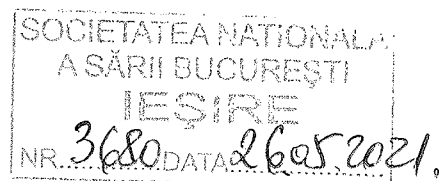 SOCIETATEA NAȚIONALA
A SĂRII BUCUREȘTI
IEȘIRE
NR. 3680 DATA 26.05.2021.